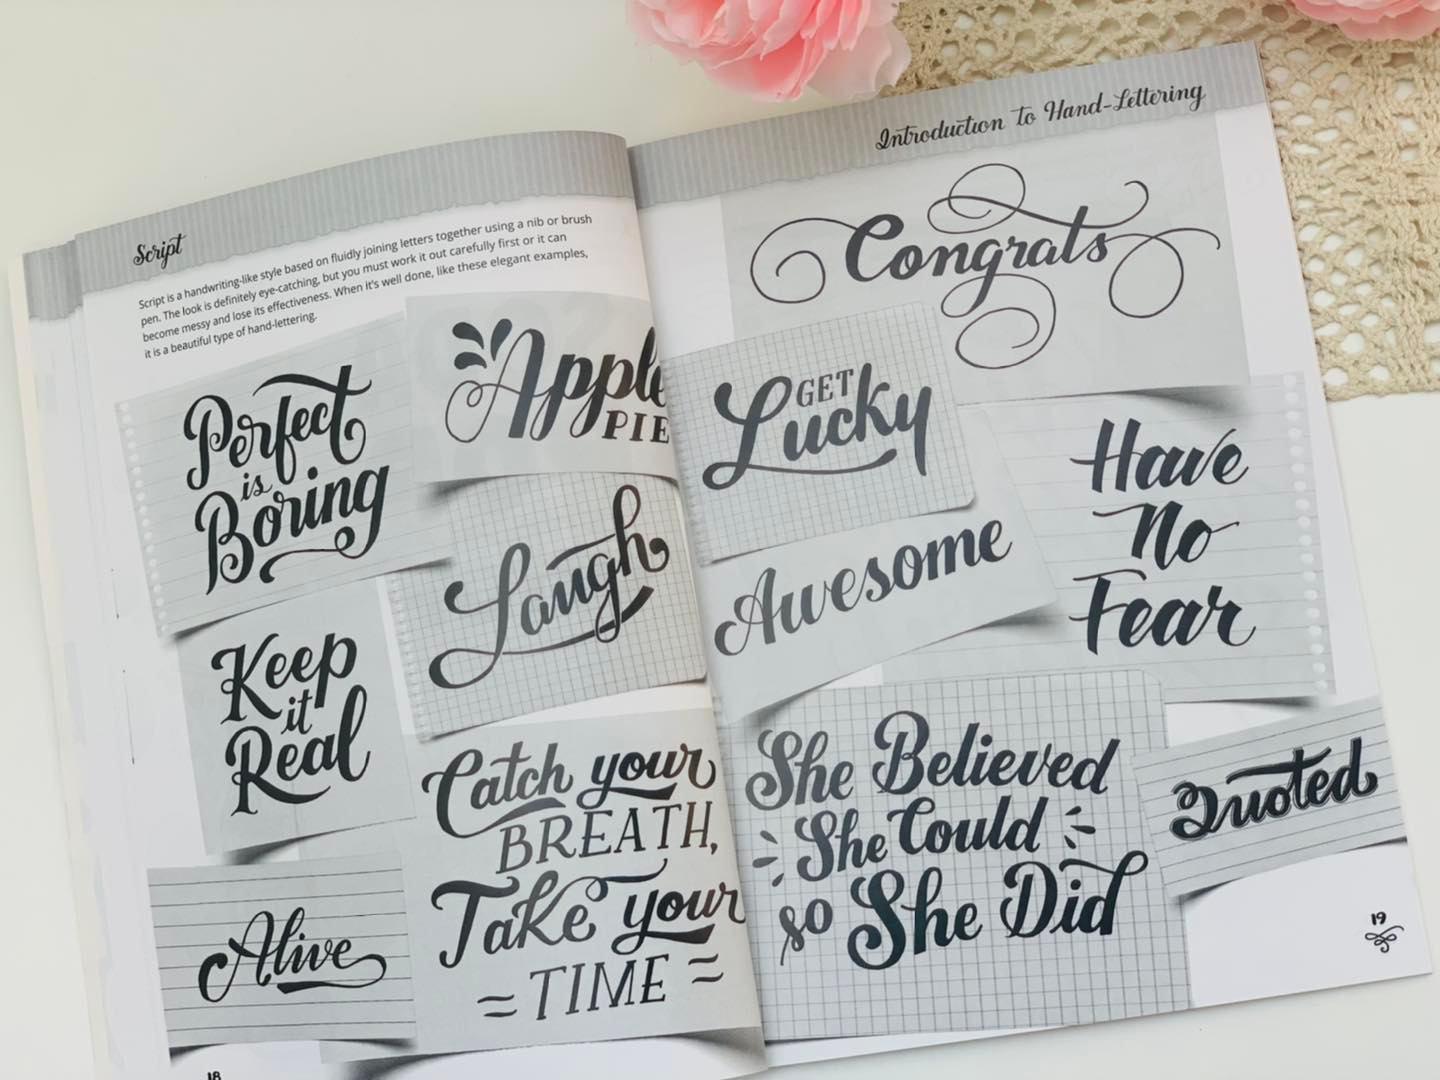 Script
Script is a handwriting-like style based on fluidly joining letters together using a nib or brush
pen. The look is definitely eye-catching, but you must work it out carefully first or it can
become messy and lose its effectiveness. When it's well done, like these elegant examples,
it is a beautiful type of hand-lettering.
Perfect
is
Boring
Apple
PIE
Laugh
Keep
it
Real
Catch your
BREATH,
Take your
TIME
Alive
18
Introduction to Hand-Lettering
Congrats
GET
Lucky
Awesome
Have
No
Fear
She Believed
She Could
so She Did
Quoted
19